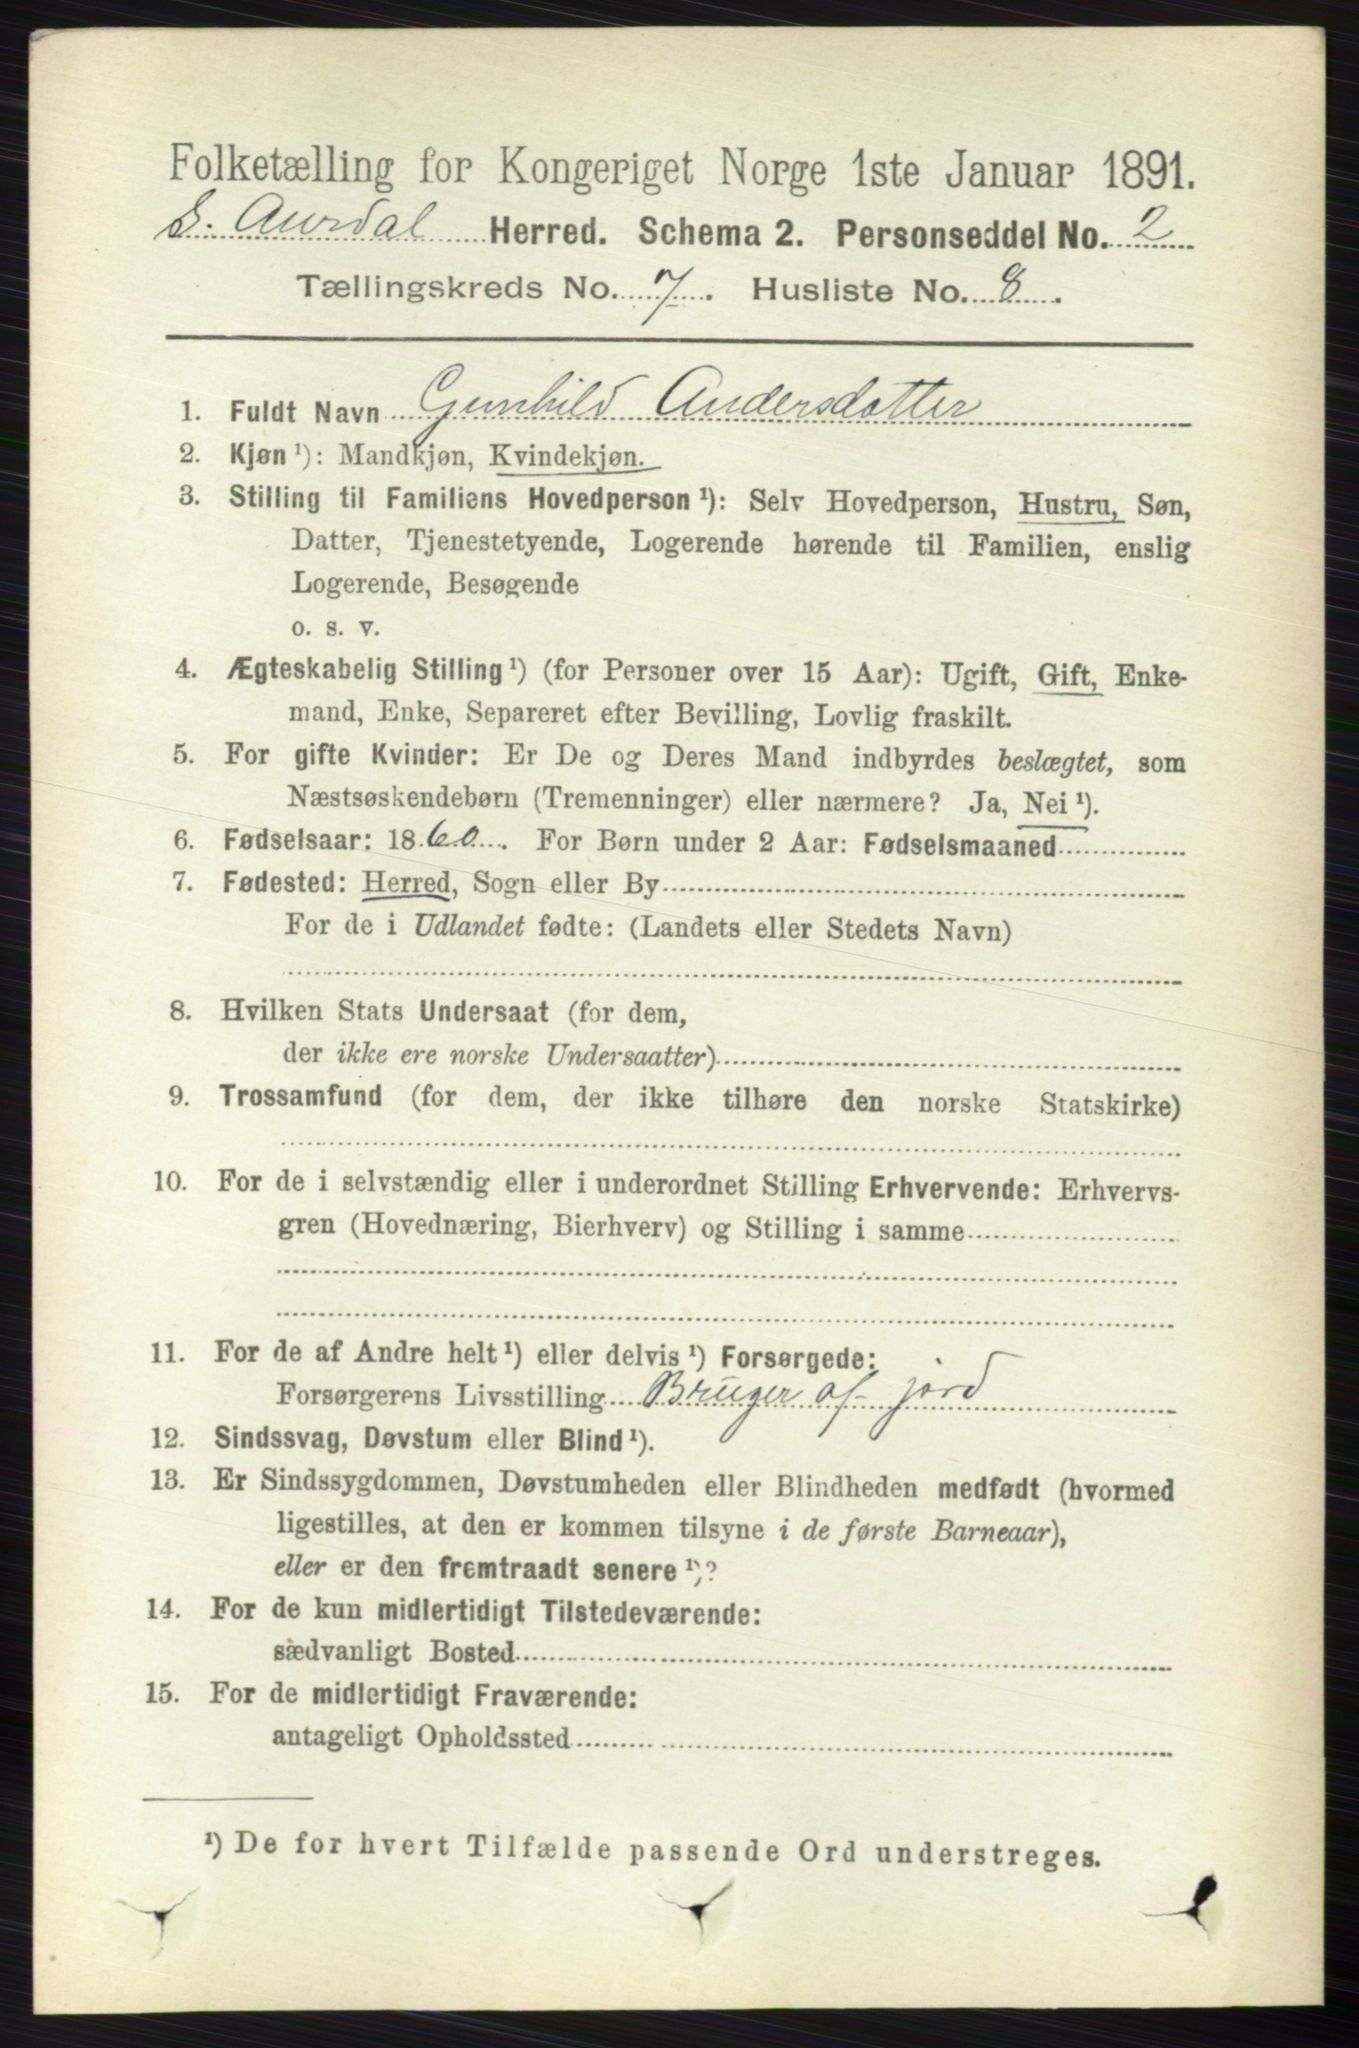 Folketælling for Kongeriget Norge 1ste Januar 1891.
S. Aurdal Herred. Schema 2. Personseddel No. 2
Tællingskreds No. 7. Husliste No. 8.
1. Fuldt Navn Gunhild Andersdatter
2. Kjøn ¹): Mandkjøn, Kvindekjøn.
3. Stilling til Familiens Hovedperson ¹): Selv Hovedperson, Hustru, Søn,
Datter, Tjenestetyende, Logerende hørende til Familien, enslig
Logerende, Besøgende
o. s. v.
4. Ægteskabelig Stilling ¹) (for Personer over 15 Aar): Ugift, Gift, Enke-
mand, Enke, Separeret efter Bevilling, Lovlig fraskilt.
5. For gifte Kvinder: Er De og Deres Mand indbyrdes beslægtet, som
Næstsøskendebørn (Tremenninger) eller nærmere? Ja, Nei ¹).
6. Fødselsaar: 1860. For Børn under 2 Aar: Fødselsmaaned
7. Fødested: Herred, Sogn eller By
For de i Udlandet fødte: (Landets eller Stedets Navn)
8. Hvilken Stats Undersaat (for dem,
der ikke ere norske Undersaatter)
9. Trossamfund (for dem, der ikke tilhøre den norske Statskirke)
10. For de i selvstændig eller i underordnet Stilling Erhvervende: Erhvervs-
gren (Hovednæring, Bierhverv) og Stilling i samme
11. For de af Andre helt ¹) eller delvis ¹) Forsørgede:
Forsørgerens Livsstilling Bruger af jord
12. Sindssvag, Døvstum eller Blind ¹).
13. Er Sindssygdommen, Døvstumheden eller Blindheden medfødt (hvormed
ligestilles, at den er kommen tilsyne i de første Barneaar),
eller er den fremtraadt senere ¹)?
14. For de kun midlertidigt Tilstedeværende:
sædvanligt Bosted
15. For de midlertidigt Fraværende:
antageligt Opholdssted
¹) De for hvert Tilfælde passende Ord understreges.